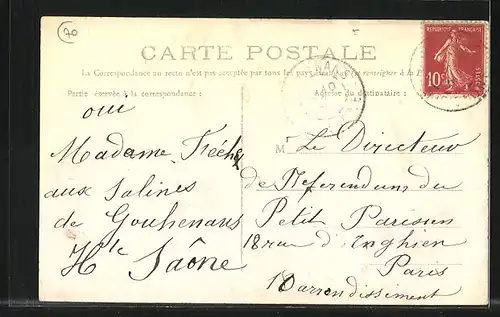 70
CARTE POSTALE
RÉPUBLIQUE FRANÇAISE
10c
POSTES
La Correspondance au recto n'est pas acceptée par tous les pays étrangers (Se renseigner à la
Partie réservée à la correspondance :
Adresse du destinataire :
oui
Madame Fréchy
aux Salines
de Gouhenans
Hte Saône
M Le Directeur
de Referendum du
Petit Parisien
18 rue d'Enghien
Paris
10 arrondissiment